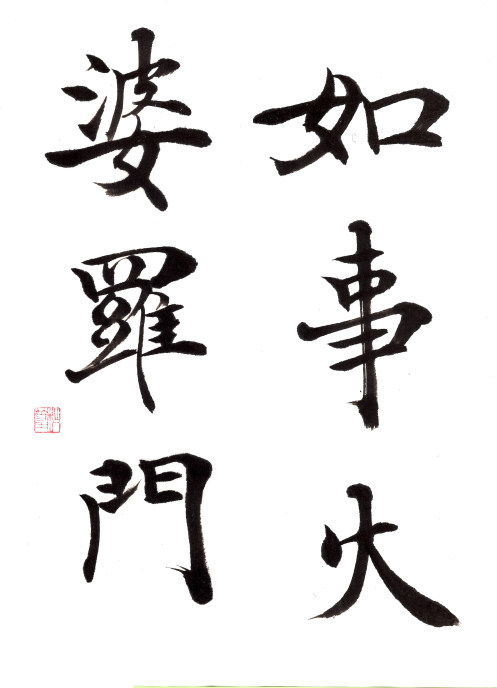 如事火
婆羅門